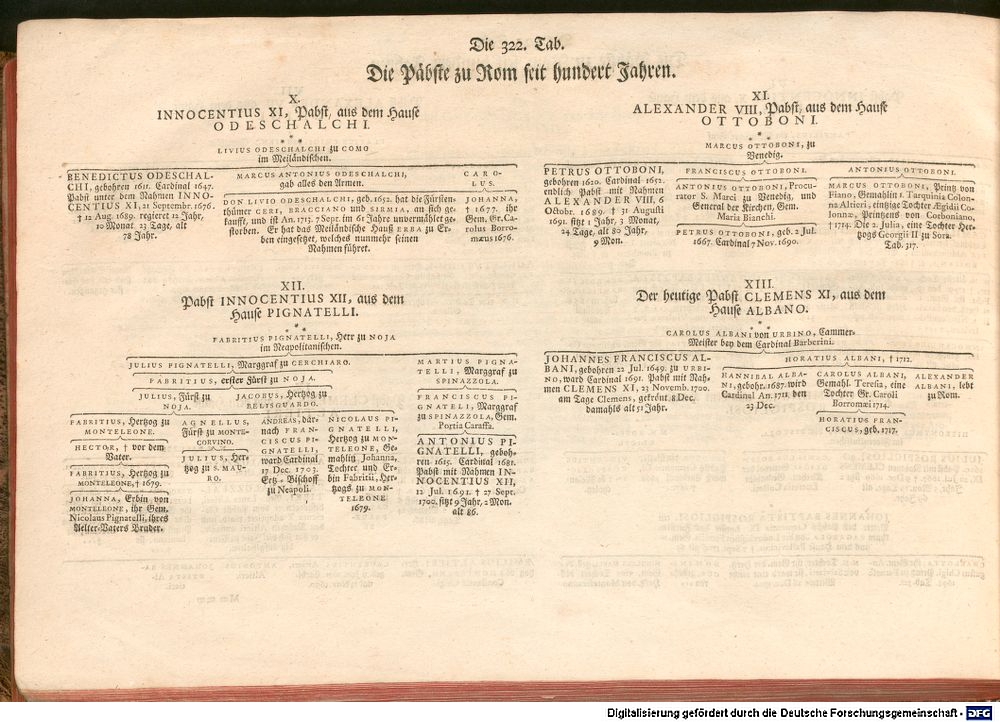 Die 322. Tab.
Die Päbste zu Rom seit hundert Jahren.
X.
INNOCENTIUS XI, Pabst, aus dem Hause
ODESCHALCHI.
LIVIUS ODESCHALCHI zu COMO
im Meiländischen.
BENEDICTUS ODESCHAL-
CHI, gebohren 1611. Cardinal 1647.
Pabst unter dem Nahmen INNO-
CENTIUS XI, 21 Septembr. 1676.
† 12 Aug. 1689. regieret 12 Jahr,
10 Monat. 23 Tage, alt
78 Jahr.
MARCUS ANTONIUS ODESCHALCHI,
gab alles den Armen.
DON LIVIO ODESCHALCHI, geb. 1652. hat die Fürsten-
thümer CERI, BRACCIANO und SIRMIA, an sich ge-
kaufft, und ist An. 1713. 7 Sept. im 61 Jahre unvermählet ge-
storben. Er hat das Meiländische Hauß ERBA zu Er-
ben eingesetzet, welches nunmehr seinen
Nahmen führet.
CARO-
LUS.
JOHANNA,
† 1677. ihr
Gem. Ca-
rolus Borro-
mæus 1676.
XI.
ALEXANDER VIII, Pabst, aus dem Hause
OTTOBONI.
MARCUS OTTOBONI, zu
Venedig.
PETRUS OTTOBONI,
gebohren 1620. Cardinal 1652.
endlich Pabst mit Nahmen
ALEXANDER VIII, 6
Octobr. 1689. † 31 Augusti
1691. sitzt 1 Jahr, 3 Monat,
24 Tage, alt 80 Jahr,
9 Mon.
FRANCISCUS OTTOBONI.
ANTONIUS OTTOBONI, Procu-
rator S. Marci zu Venedig, und
General der Kirchen, Gem.
Maria Bianchi.
PETRUS OTTOBONI, geb. 2 Jul.
1667. Cardinal 7 Nov. 1690.
ANTONIUS OTTOBONI.
MARCUS OTTOBONI, Printz von
Fiano, Gemahlin 1. Tarquinia Colon-
na Altieri, eintzige Tochter Ægidii Co-
lonnæ, Printzens von Corboniano,
† 1714. Die 2. Julia, eine Tochter Her-
tzogs Georgii II zu Sora.
Tab. 317.
XII.
Pabst INNOCENTIUS XII, aus dem
Hause PIGNATELLI.
FABRITIUS PIGNATELLI, Herr zu NOJA
im Neapolitanischen.
JULIUS PIGNATELLI, Marggraf zu CERCHIARO.
FABRITIUS, erster Fürst zu NOJA.
JULIUS, Fürst zu
NOJA.
JACOBUS, Hertzog zu
BELISGUARDO.
FABRITIUS, Hertzog zu
MONTELEONE.
HECTOR, † vor dem
Vater.
FABRITIUS, Hertzog zu
MONTELEONE, † 1679.
JOHANNA, Erbin von
MONTELEONE, ihr Gem.
Nicolaus Pignatelli, ihres
Aelter-Vaters Bruder.
AGNELLUS,
Fürst zu MONTE-
CORVINO.
JULIUS, Her-
tzog zu S. MAU-
RO.
ANDREAS, dar-
nach FRAN-
CISCUS PI-
GNATELLI,
ward Cardinal
17 Dec. 1703.
Ertz-Bischoff
zu Neapoli.
NICOLAUS PI-
GNATELLI,
Hertzog zu MON-
TELEONE, Ge-
mahlin Johanna,
Tochter und Er-
bin Fabritii, Her-
tzogs zu MON-
TELEONE
1679.
MARTIUS PIGNA-
TELLI, Marggraf zu
SPINAZZOLA.
FRANCISCUS PI-
GNATELLI, Marggraf
zu SPINAZZOLA, Gem.
Portia Caraffa.
ANTONIUS PI-
GNATELLI, geboh-
ren 1615. Cardinal 1681.
Pabst mit Nahmen IN-
NOCENTIUS XII,
12 Jul. 1691. † 27 Sept.
1700. sitzt 9 Jahr, 2 Mon.
alt 86.
XIII.
Der heutige Pabst CLEMENS XI, aus dem
Hause ALBANO.
CAROLUS ALBANI von URBINO, Cammer-
Meister bey dem Cardinal Barberini.
JOHANNES FRANCISCUS AL-
BANI, gebohren 22 Jul. 1649. zu URBI-
NO, ward Cardinal 1691. Pabst mit Nah-
men CLEMENS XI, 23 Novemb. 1700.
am Tage Clemens, gekrönt 8 Dec.
damahls alt 51 Jahr.
HORATIUS ALBANI, † 1712.
HANNIBAL ALBA-
NI, gebohr. 1687. wird
Cardinal An. 1711. den
23 Dec.
CAROLUS ALBANI,
Gemahl. Teresia, eine
Tochter Gr. Caroli
Borromæi 1714.
HORATIUS FRAN-
CISCUS, geb. 1717.
ALEXANDER
ALBANI, lebt
zu Rom.
Digitalisierung gefördert durch die Deutsche Forschungsgemeinschaft - DFG